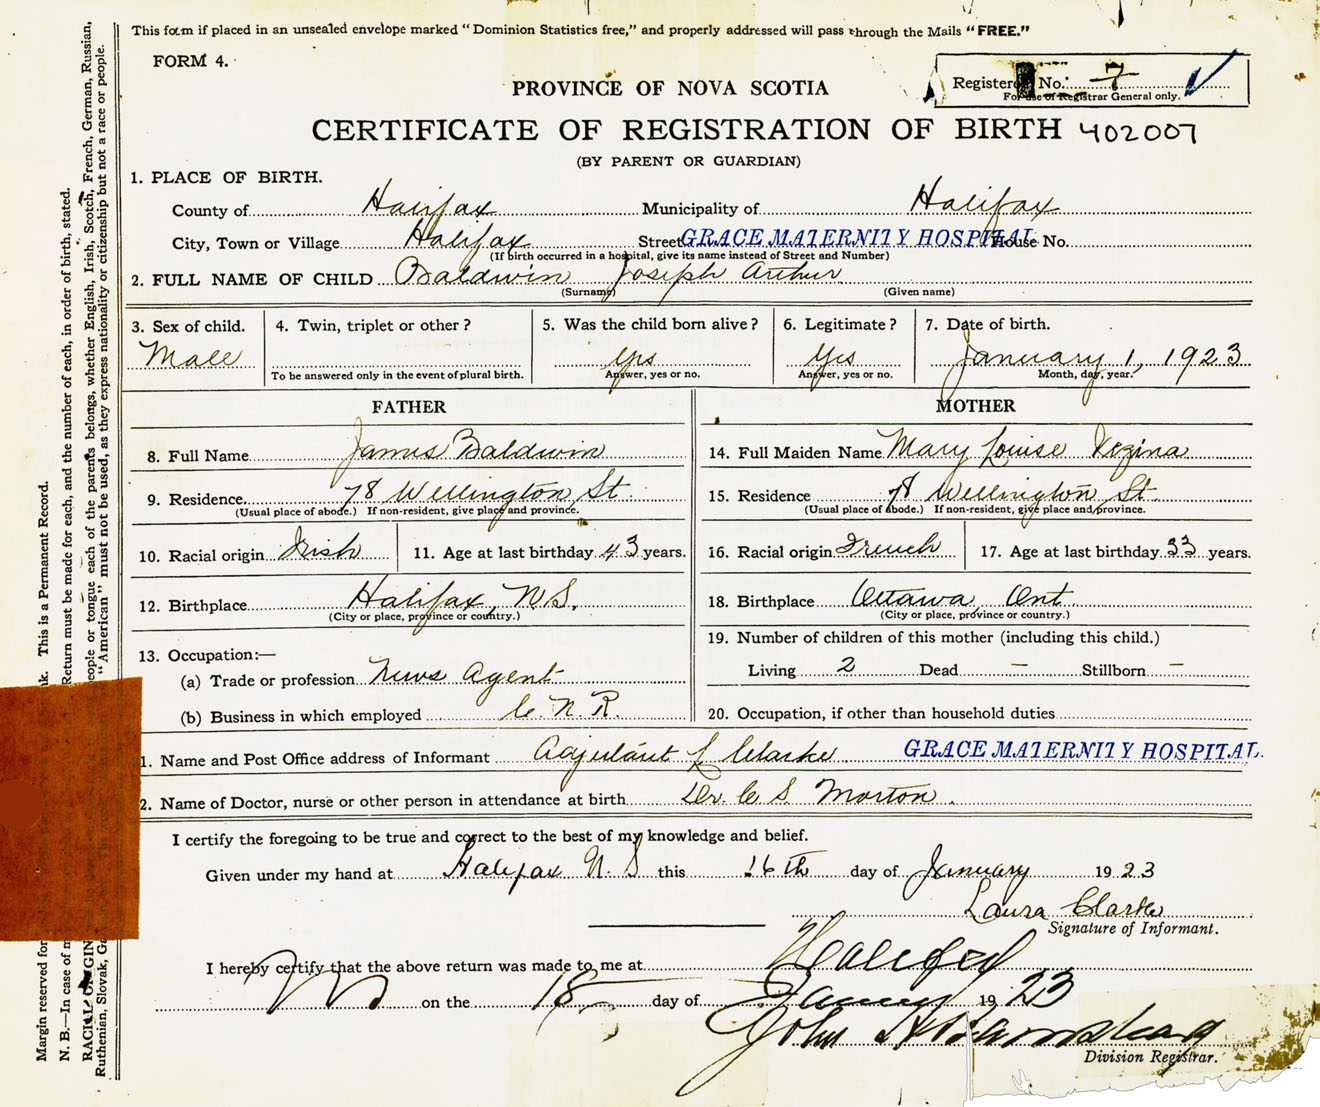 This form if placed in an unsealed envelope marked "Dominion Statistics free," and properly addressed will pass through the Mails "FREE."
FORM 4.
Registered No. 7
For use of Registrar General only.
PROVINCE OF NOVA SCOTIA
CERTIFICATE OF REGISTRATION OF BIRTH 402007
(BY PARENT OR GUARDIAN)
1. PLACE OF BIRTH.
County of Halifax Municipality of Halifax
City, Town or Village Halifax Street GRACE MATERNITY HOSPITAL House No.
(If birth occurred in a hospital, give its name instead of Street and Number)
2. FULL NAME OF CHILD Baldwin Joseph Arthur
(Surname) (Given name)
3. Sex of child. 4. Twin, triplet or other? 5. Was the child born alive? 6. Legitimate? 7. Date of birth.
Male Yes Yes January 1, 1923
To be answered only in the event of plural birth. Answer, yes or no. Answer, yes or no. Month, day, year.
FATHER
8. Full Name James Baldwin
9. Residence 78 Wellington St.
(Usual place of abode.) If non-resident, give place and province.
10. Racial origin Irish 11. Age at last birthday 43 years.
12. Birthplace Halifax, N.S.
(City or place, province or country.)
13. Occupation:—
(a) Trade or profession News Agent
(b) Business in which employed C.N.R.
MOTHER
14. Full Maiden Name Mary Louise
15. Residence 78 Wellington St
(Usual place of abode.) If non-resident, give place and province.
16. Racial origin French 17. Age at last birthday 33 years.
18. Birthplace Ottawa, Ont
(City or place, province or country.)
19. Number of children of this mother (including this child.)
Living 2 Dead — Stillborn —
20. Occupation, if other than household duties
1. Name and Post Office address of Informant Adjutant L Clarke GRACE MATERNITY HOSPITAL.
2. Name of Doctor, nurse or other person in attendance at birth Dr. C S Morton.
I certify the foregoing to be true and correct to the best of my knowledge and belief.
Given under my hand at Halifax N.S this 16th day of January 1923
Laura Clarke
Signature of Informant.
I hereby certify that the above return was made to me at Halifax
NS on the 18 day of January 1923
John
Division Registrar.
Margin reserved for This is a Permanent Record.
N. B.—In case of Return must be made for each, and the number of each, in order of birth, stated.
RACIAL ORIGIN people or tongue each of the parents belongs, whether English, Irish, Scotch, French, German, Russian,
Ruthenian, Slovak, "American" must not be used, as they express nationality or citizenship but not a race or people.